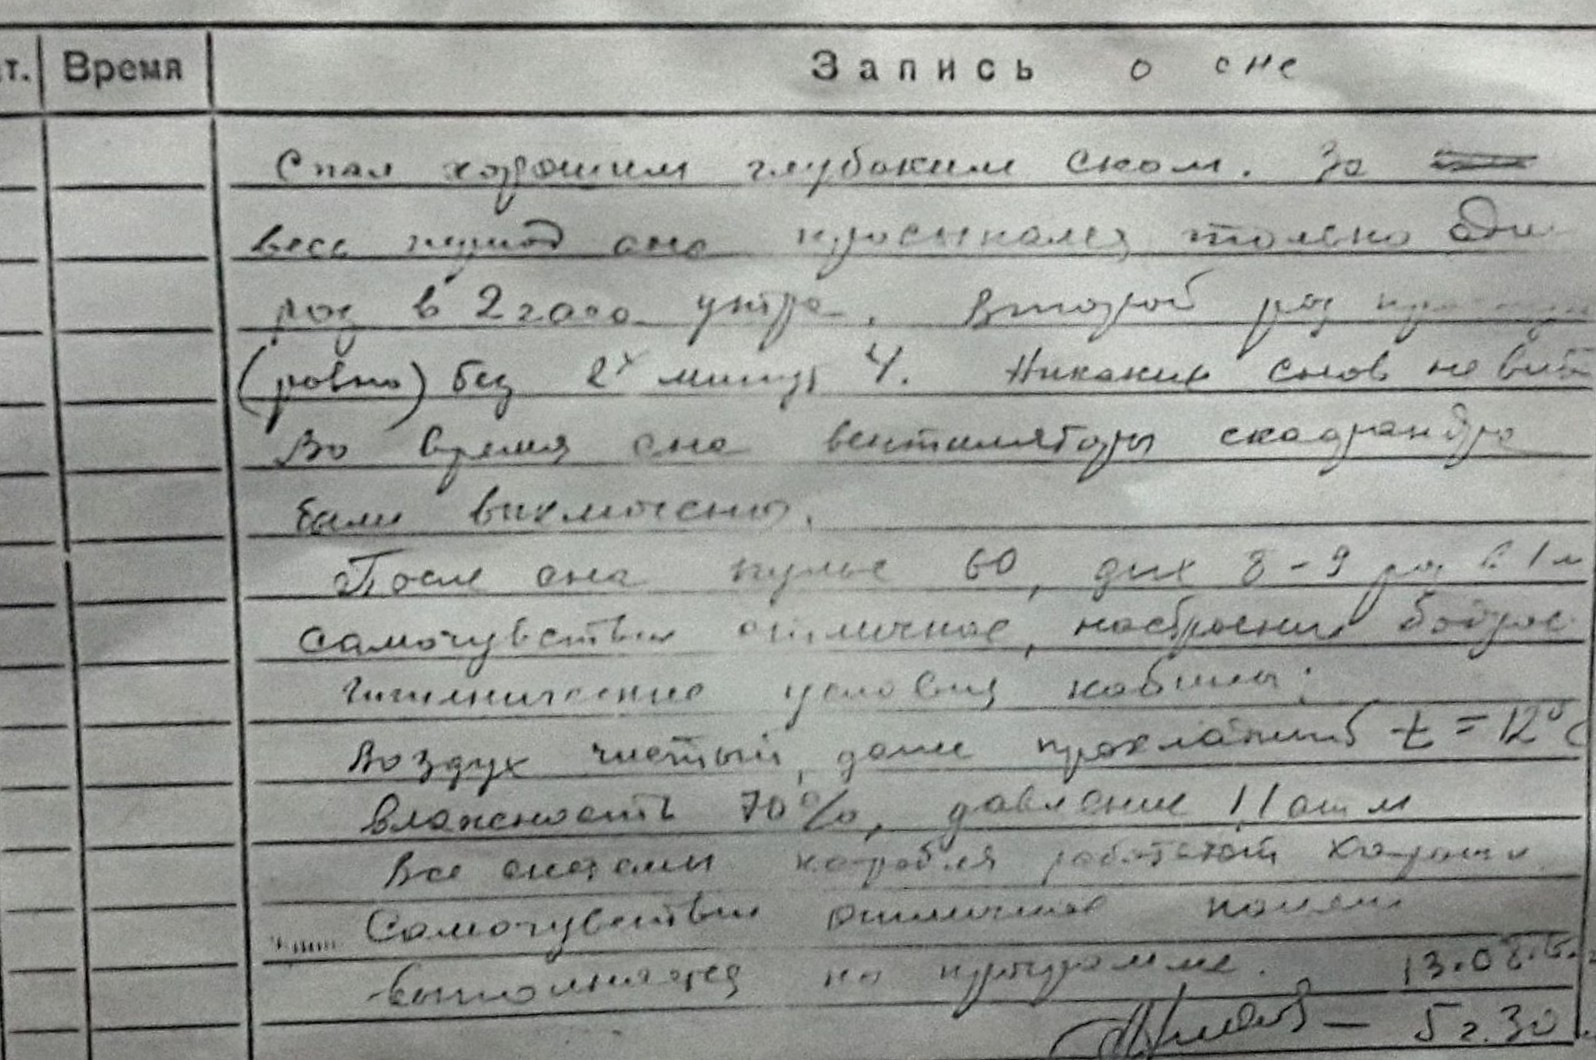 т. Время Запись о сне
Спал хорошим глубоким сном. За
весь период сна просыпался только оди
раз в 2 часа утра. Второй раз
(ровно) без 2х минут 4. Никаких снов не вид
Во время сна вентиляторы скафандра
были выключены.
После сна пульс 60, дых 8-9 раз в 1 м
Самочувствие отличное, настроение бодрое
Гигиенические условия кабины:
Воздух чистый, даже прохладный t = 12°С
влажность 70%, давление 1,1 атм
Все системы корабля работают хорошо
Самочувствие отличное
выполняется по программе. 13.08.
– 5 ч. 30